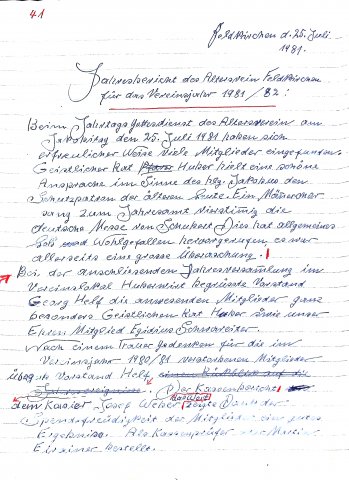 41
Feldkirchen d. 25. Juli
1981.
Jahresbericht des Altersverein Feldkirchen
für das Vereinsjahr 1981/82:
Beim Jahrtagsgottesdienst des Altersverein am
Jakobitag den 25. Juli 1981 haben sich
erfreulicher Weise viele Mitglieder eingefunden.
Geistlicher Rat Huber hielt eine schöne
Ansprache im Sinne des Hlg. Jakobus den
Schutzpatron der älteren Leute. Ein Männerchor
sang zum Jahresamt vierstimmig die
deutsche Messe von Schubert. Dies hat allgemeines
Lob und Wohlgefallen hervorgerufen, es war
allerseits eine grosse Überraschung.
Bei der anschliessenden Jahresversammlung im
Vereinslokal Huberwirt Begrüsste Vorstand
Georg Helf die anwesenden Mitglieder ganz
besonders Geistlichen Rat Huber sowie unser
Ehren Mitglied Egidius Schwarzer.
Nach einem Trauer gedenken für die im
Vereinsjahr 1980/81 verstorbenen Mitglieder
Vorstand Helf
Der Kassenbericht
dem Kasier Josef Weber zeigte Dank der
Spendefreudigkeit der Mitglieder ein gutes
Ergebniss. Als Kassenprüfer
bestellt.